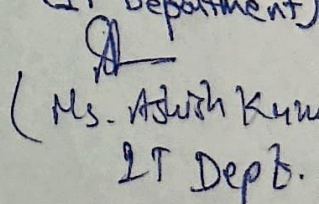 (IT Department)
(Ms. Ashish Kum
IT Dept.